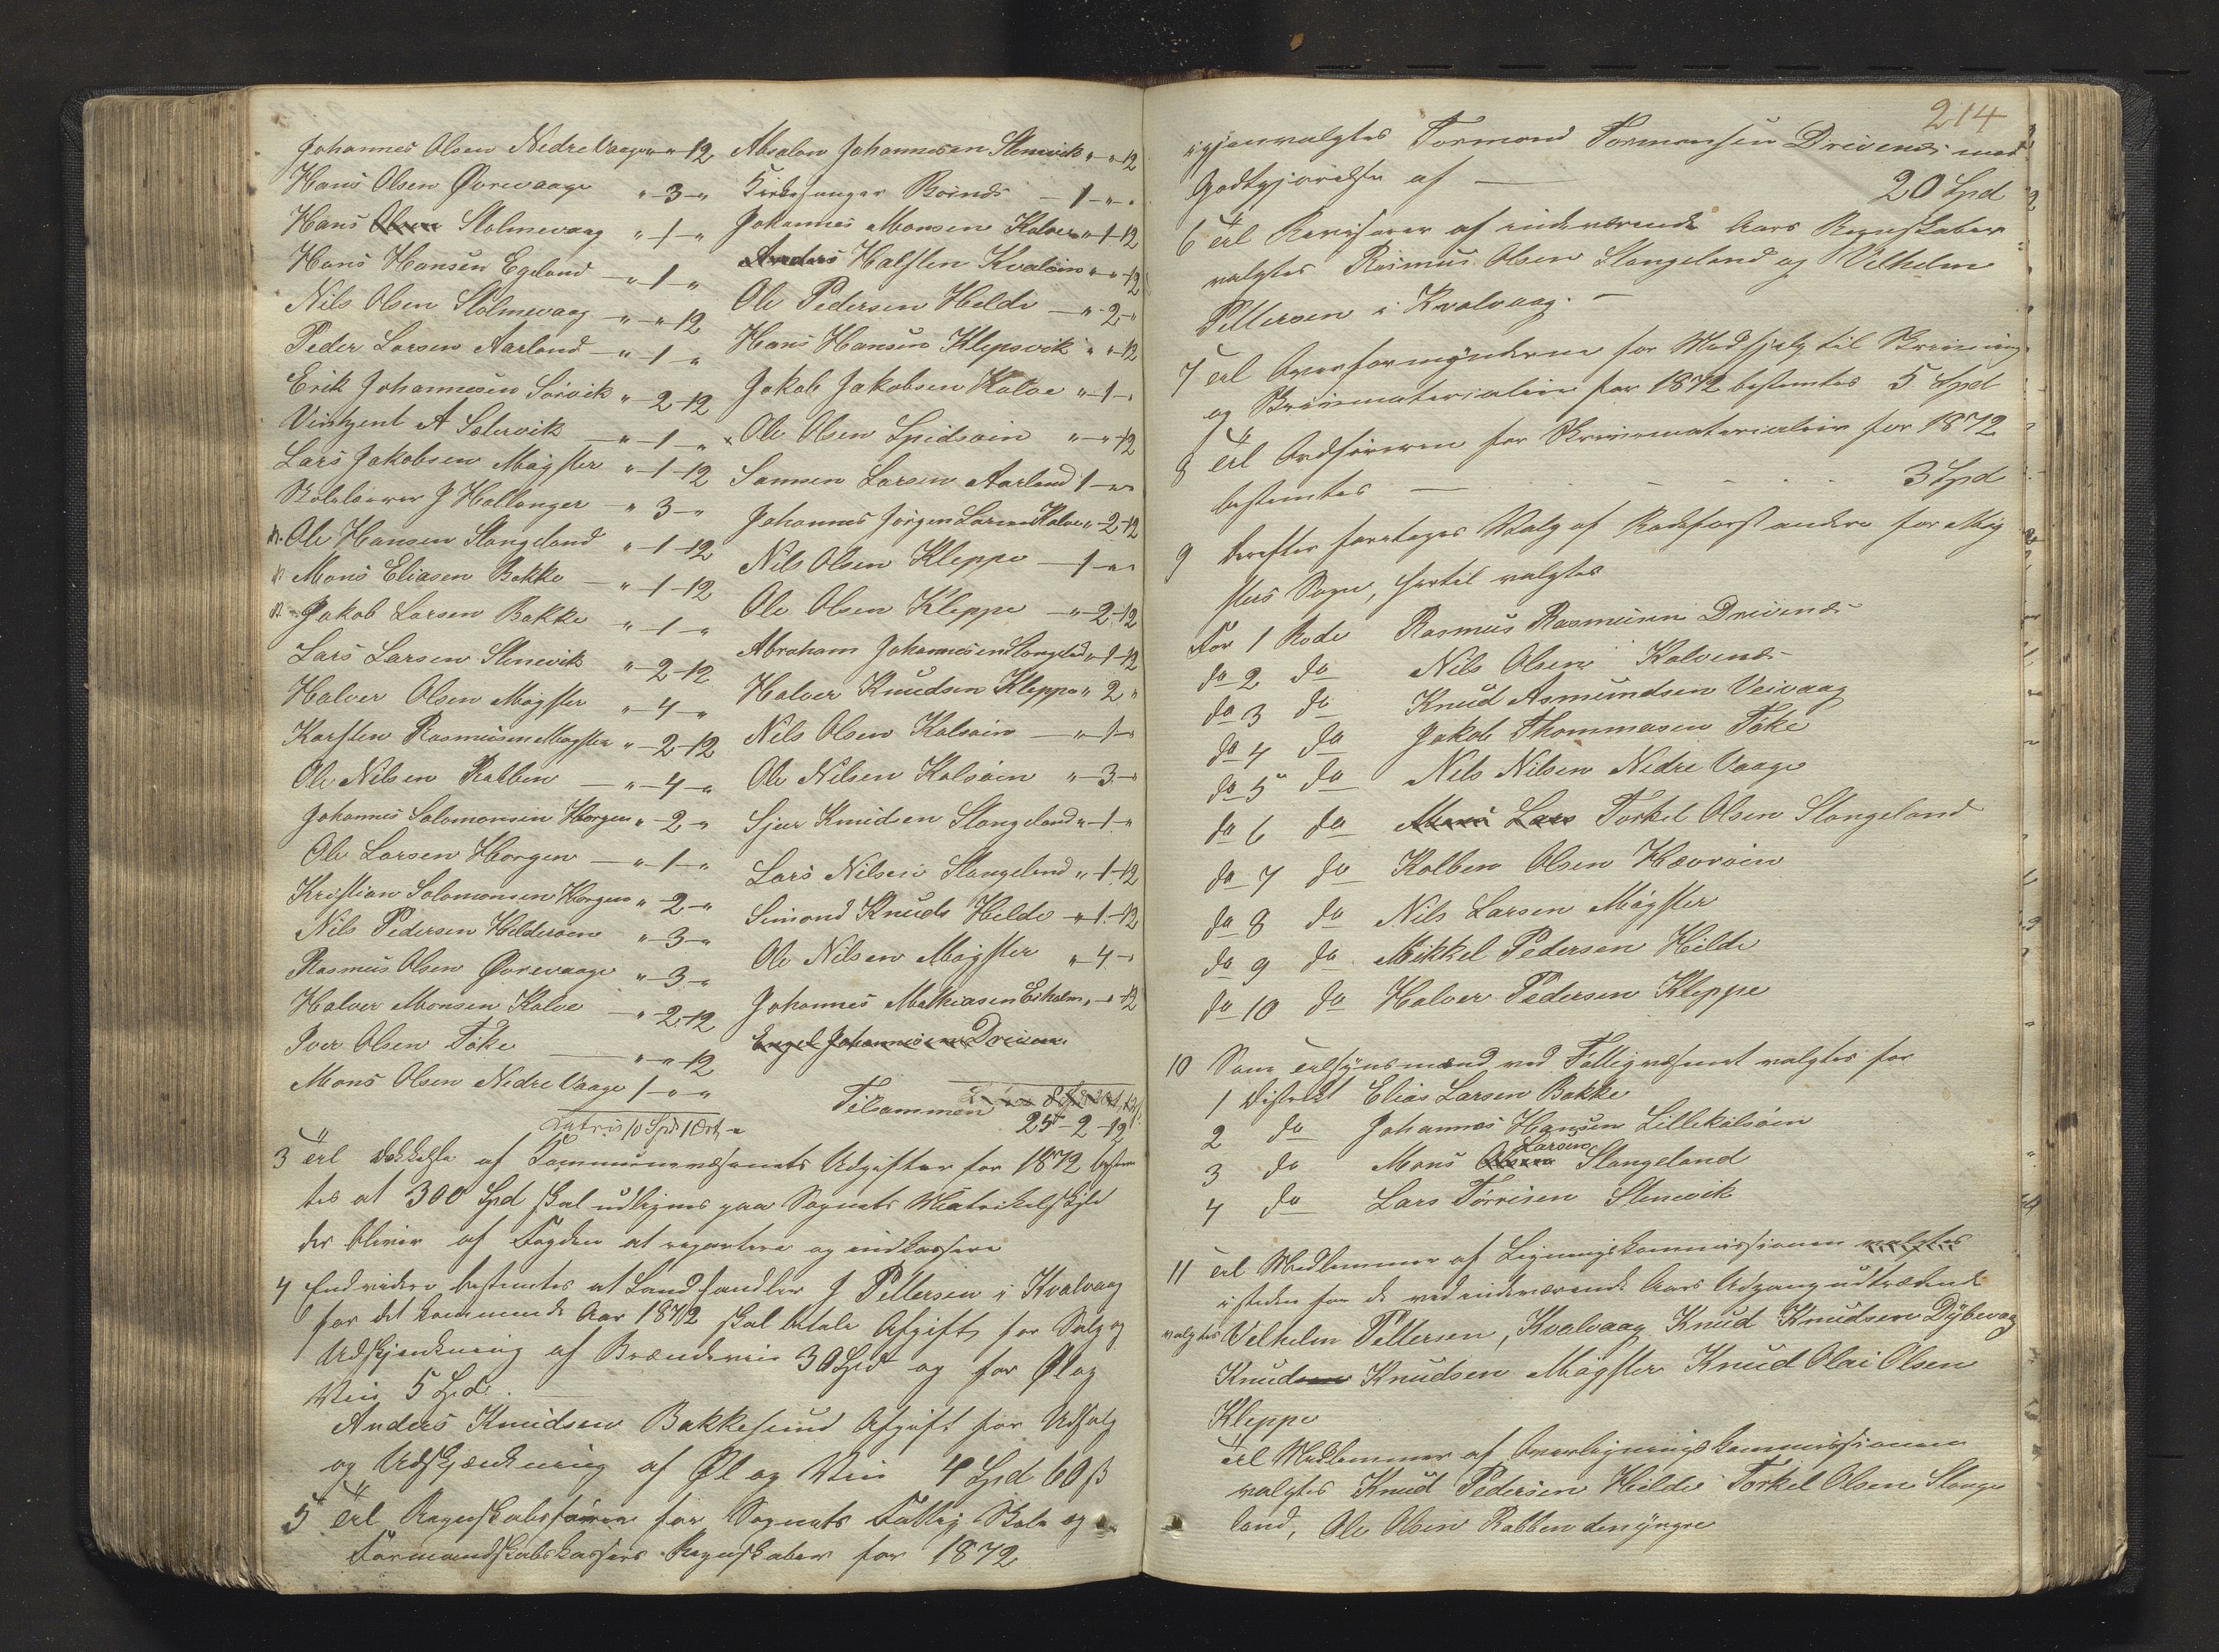 Johannes Olsen Nedre Vaage " - " 12
Hans Olsen Øvrevaage " - 3 - "
Hans Stolmevaag " - 1 - "
Hans Hansen Egeland - " - 1 - "
Nils Olsen Stolmevaag - " - " 12
Peder Larsen Aarland - " - 1 - "
Erik Johannesen Sørvik " - 2 - 12
Vintzent A Selevik - " - 1 - "
Lars Jakobsen Møgster " - 1 - 12
Skolelærer J Hallanger - " 3 - "
Ole Hansen Stangeland " - 1 - 12
Mons Eliasen Bakke - " - 1 - 12
Jakob Larsen Bakke " - 1 - "
Lars Larsen Stenevik " - 2 - 12
Halver Olsen Møgster " - 4 - "
Karsten Rasmusen Møgster " - 2 - 12
Ole Nilsen Rabben - " - 4 - "
Johannes Salomonsen Horgen " - 2 - "
Ole Larsen Horgen - " - 1 - "
Kristian Salomonsen Horgen " - 2 - "
Nils Pedersen Heldeøen " - 3 - "
Rasmus Olsen Øvrevaage " - 3 - "
Halver Monsen Kalve - " 2 - 12
Iver Olsen Føke - " - " 12
Mons Olsen Nedre Vaage 1 - " - "
Latus 10 Spd 1 Ort "
Absalon Johannesen Stenevik " - " 12
Kirkesanger Børnes - 1 - " - "
Johannes Monsen Kalve " - 1 - 12
Anders Halsten Kvaløen " - " - 12
Ole Pedersen Helde - " - 2 - "
Hans Hansen Klepsvik " - " - 12
Jakob Jakobsen Kalve " - 1 - "
Ole Olsen Spidsøen " - " - 12
Samson Larsen Aarland 1 - " - "
Johannes Jørgen Larsen Kalve " - 2 - 12
Nils Olsen Kleppe - 1 - " - "
Ole Olsen Kleppe - " - 2 - 12
Abraham Johannesen Stangeland " - 1 - 12
Halver Knudsen Kleppe " 2 "
Nils Olsen Kalsøen - " - 1 - "
Ole Nilsen Kalsøen " - 3 - "
Sjur Knudsen Stangeland " - 1 - "
Lars Nilsen Stangeland " - 1 - 12
Simond Knuds Helde - " 1 - 12
Ole Nilsen Møgster " - 4 - "
Johannes Mathiasen Eeholm " - " 12
Engel Johannesen Drivenes
Tilsammen 25 - 2 - 12
3 Til Dækkelse af Kommunevæsenets Udgifter for 1872 bestem
tes at 300 Spd skal udlignes paa Sognets Matrikelskyld
der bliver af Fogden at repartere og indkassere
4 Endvidere bestemtes at Landhandler J Pettersen i Kvalvaag
for det kommende Aar 1872 skal betale Afgift for Salg og
Udskjænkning af Brændeviin 30 Spd og for Øl og
Viin 5 Spd. -
Anders Knudsen Bakkesund Afgift for Udsalg
og Udskjænkning af Øl og Viin 4 Spd 60 ß
5 Til Regnskabsfører for Sognets Fattig Skole og
Formandskabskasses Regnskaber for 1872
214
igjenvalgtes Tormond Tormonsen Drivenes med
Godtgjørelse af - 20 Spd
6 Til Revisorer af indeværende Aars Regnskaber
valgtes Rasmus Olsen Stangeland og Vilhelm
Pettersen i Kvalvaag. -
7 Til Overformynderne for Medhjelp til Skrivning
og Skrivematerialier for 1872 bestemtes 5 Spd
8 Til Ordføreren for Skrivematerialier for 1872
bestemtes - 3 Spd
9 Derefter foretoges Valg af Rodeforstandere for Møg
sters Sogn, hertil valgtes
For 1 Rode Rasmus Rasmusen Drivenes
do 2 do Nils Olsen Kalvenes
do 3 do Knud Asmundsen Veivaag
do 4 do Jakob Thommasen Føke
do 5 do Nils Nilsen Nedre Vaage
do 6 do Mons Lars Torkel Olsen Stangeland
do 7 do Kolben Olsen Hevrøen
do 8 do Nils Larsen Møgster
do 9 do Mikkel Pedersen Hilde
do 10 do Halver Pedersen Kleppe
10 Som Tilsynsmænd ved Fattigvæsenet valgtes for
1 Distrikt Elias Larsen Bakke
2 do Johannes Hansen Lillekalsøen
3 do Mons Olsen Larsen Stangeland
4 do Lars Tørrisen Stenevik
11 Til Medlemmer af Ligningskommissionen valgtes
isteden for de ved indeværende Aars Udgang udtrædende
valgtes Velhelm Pettersen, Kvalvaag Knud Knudsen Dybevaag
Knud Knudsen Møgster Knud Olai Olsen
Kleppe
Til Medlemmer af Overligningskommissionen
valgtes Knud Pedersen Hilde Torkel Olsen Stange
land, Ole Olsen Rabben den yngre